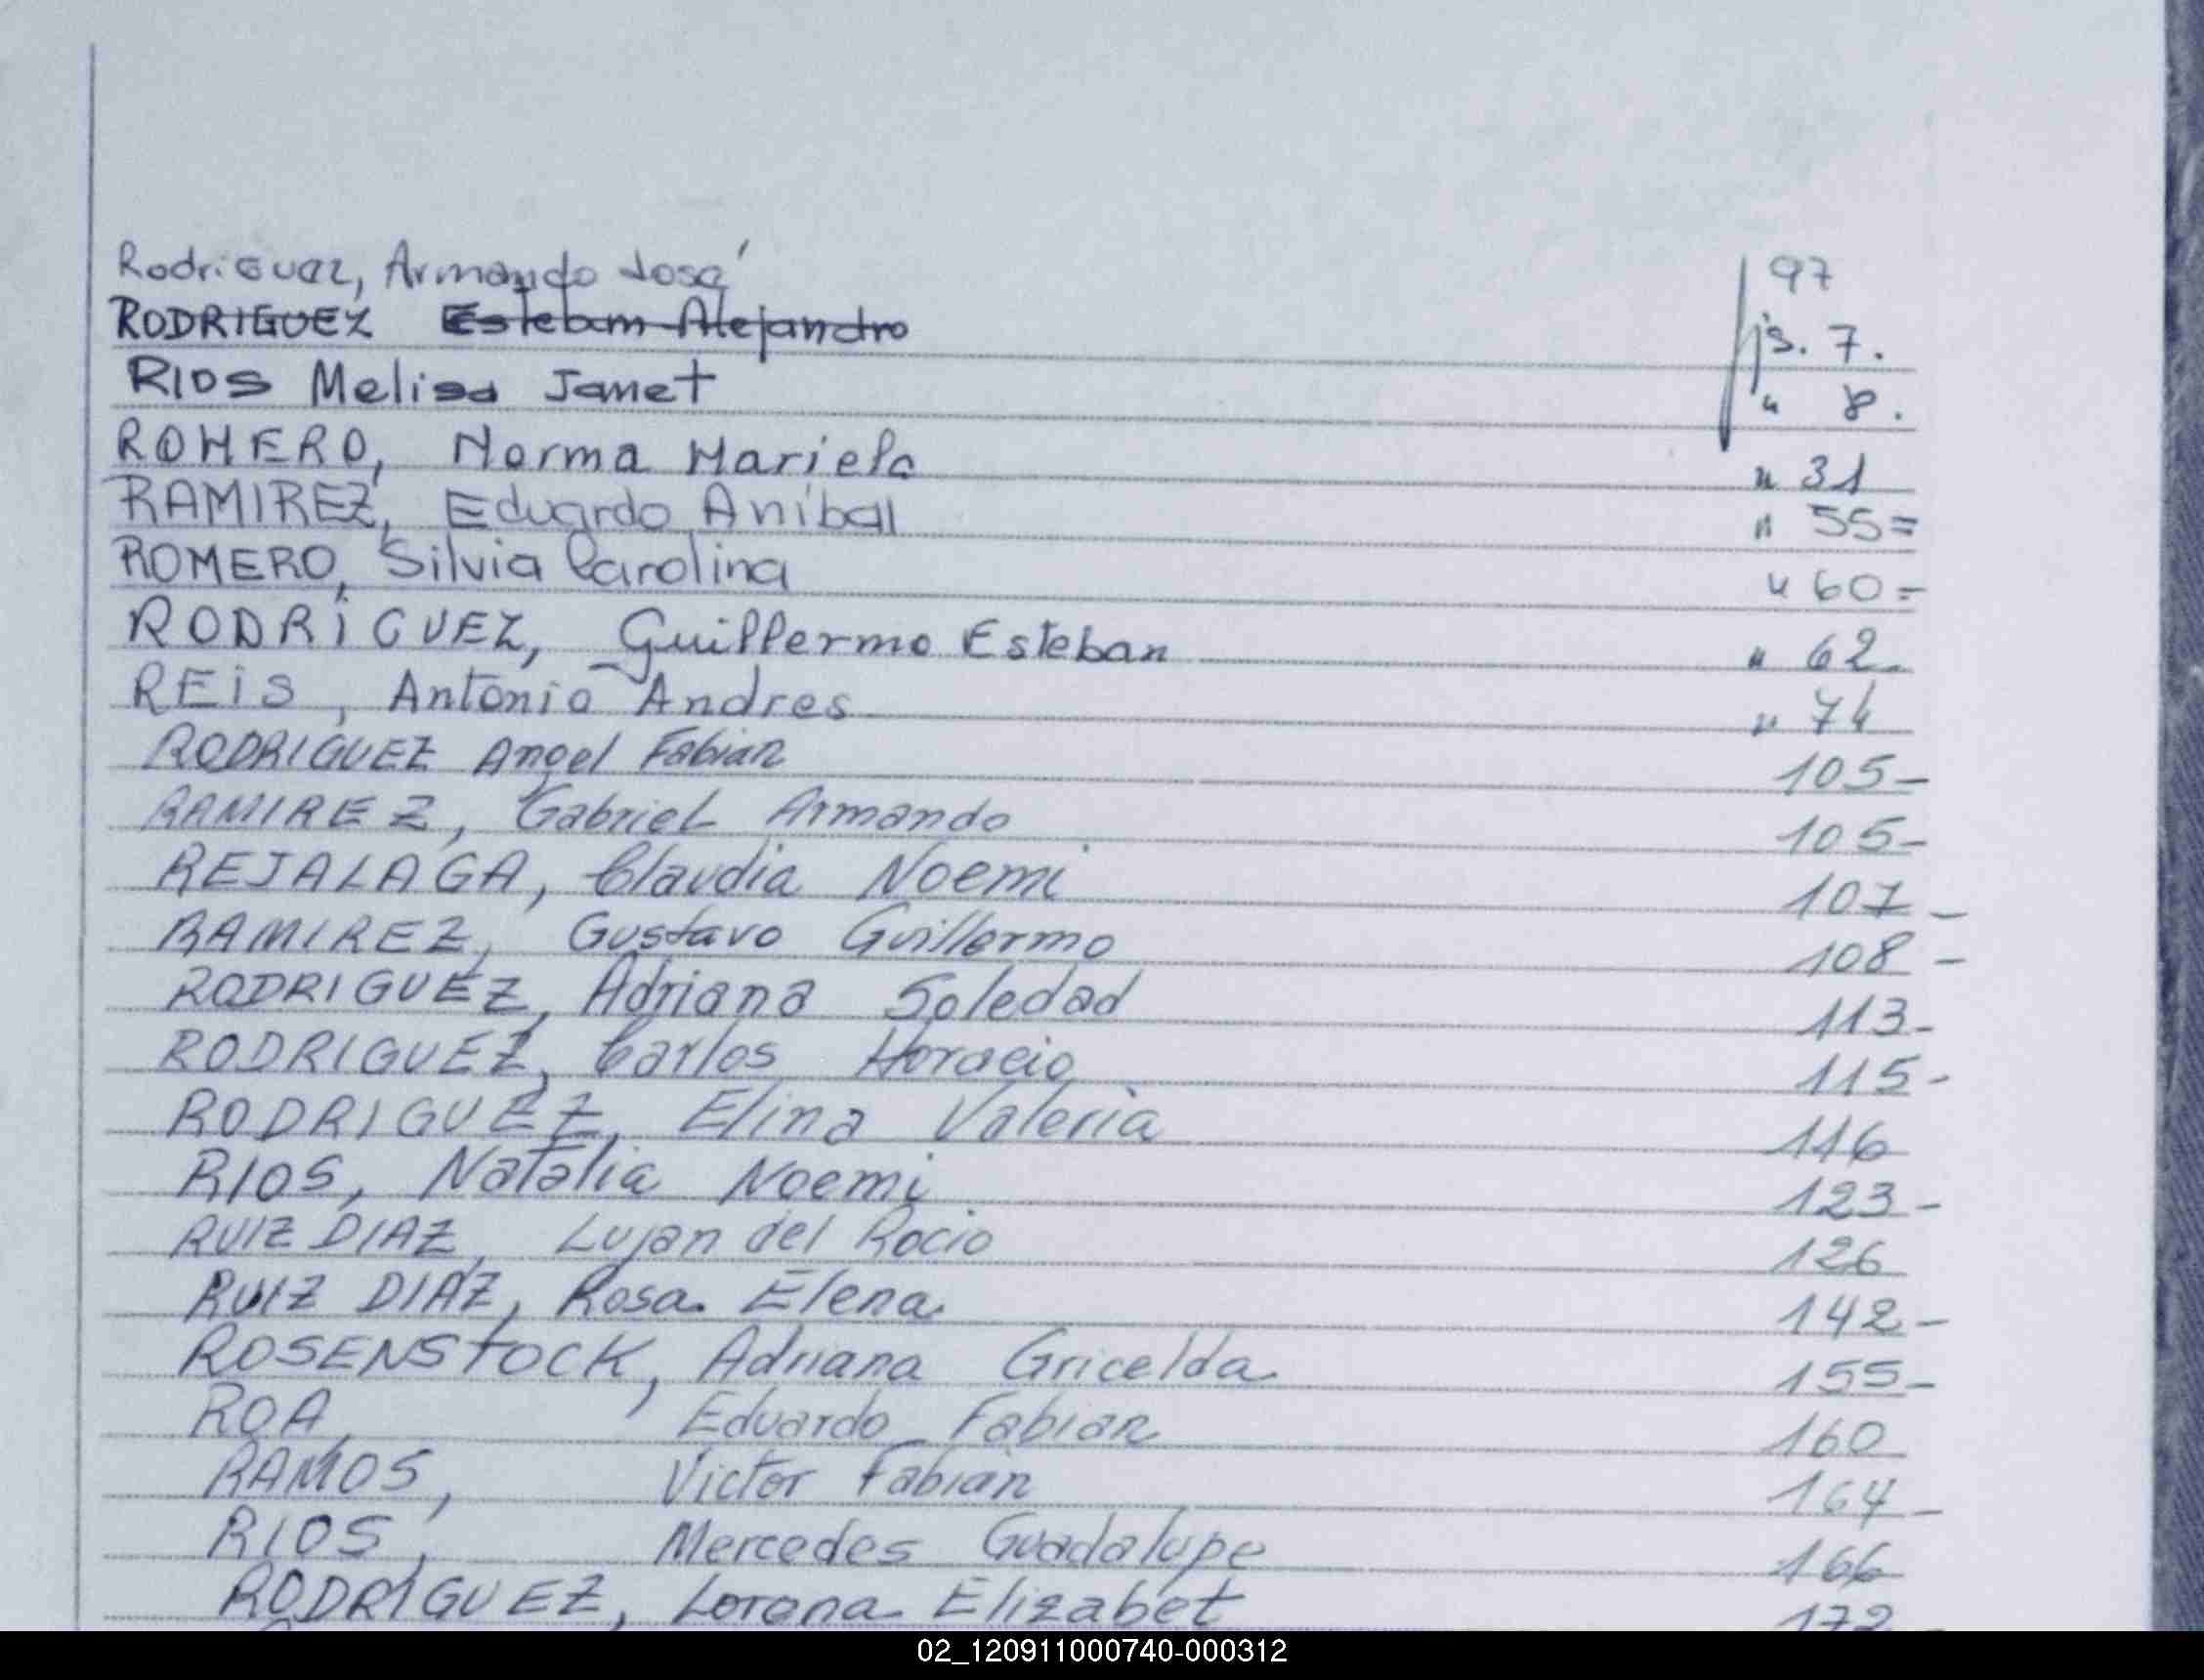 Rodriguez, Armando José 97
RODRIGUEZ Esteban Alejandro js. 7.
RIOS Melisa Janet " 8.
ROMERO, Norma Mariela " 31
RAMIREZ, Eduardo Anibal " 55=
ROMERO, Silvia Carolina " 60=
RODRIGUEZ, Guillermo Esteban " 62-
REIS, Antonio Andres " 74
RODRIGUEZ Angel Fabian 105-
RAMIREZ, Gabriel Armando 105-
REJALAGA, Claudia Noemi 107-
RAMIREZ, Gustavo Guillermo 108-
RODRIGUEZ, Adriana Soledad 113-
RODRIGUEZ, Carlos Horacio 115-
RODRIGUEZ, Elina Valeria 116
RIOS, Natalia Noemi 123-
RUIZ DIAZ, Lujan del Rocio 126
RUIZ DIAZ, Rosa Elena 142-
ROSENSTOCK, Adriana Gricelda 155-
ROA, Eduardo Fabian 160
RAMOS, Victor Fabian 164-
RIOS, Mercedes Guadalupe 166
RODRIGUEZ, Lorena Elizabet 172-
02_120911000740-000312